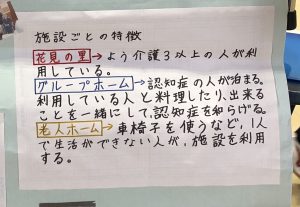 施設ごとの特徴
花見の里→よう介護3以上の人が利
用している。
グループホーム→認知症の人が泊まる。
利用している人と料理したり、出来る
ことを一緒にして、認知症を和らげる。
老人ホーム→車椅子を使うなど、1人
で生活ができない人が、施設を利用
する。